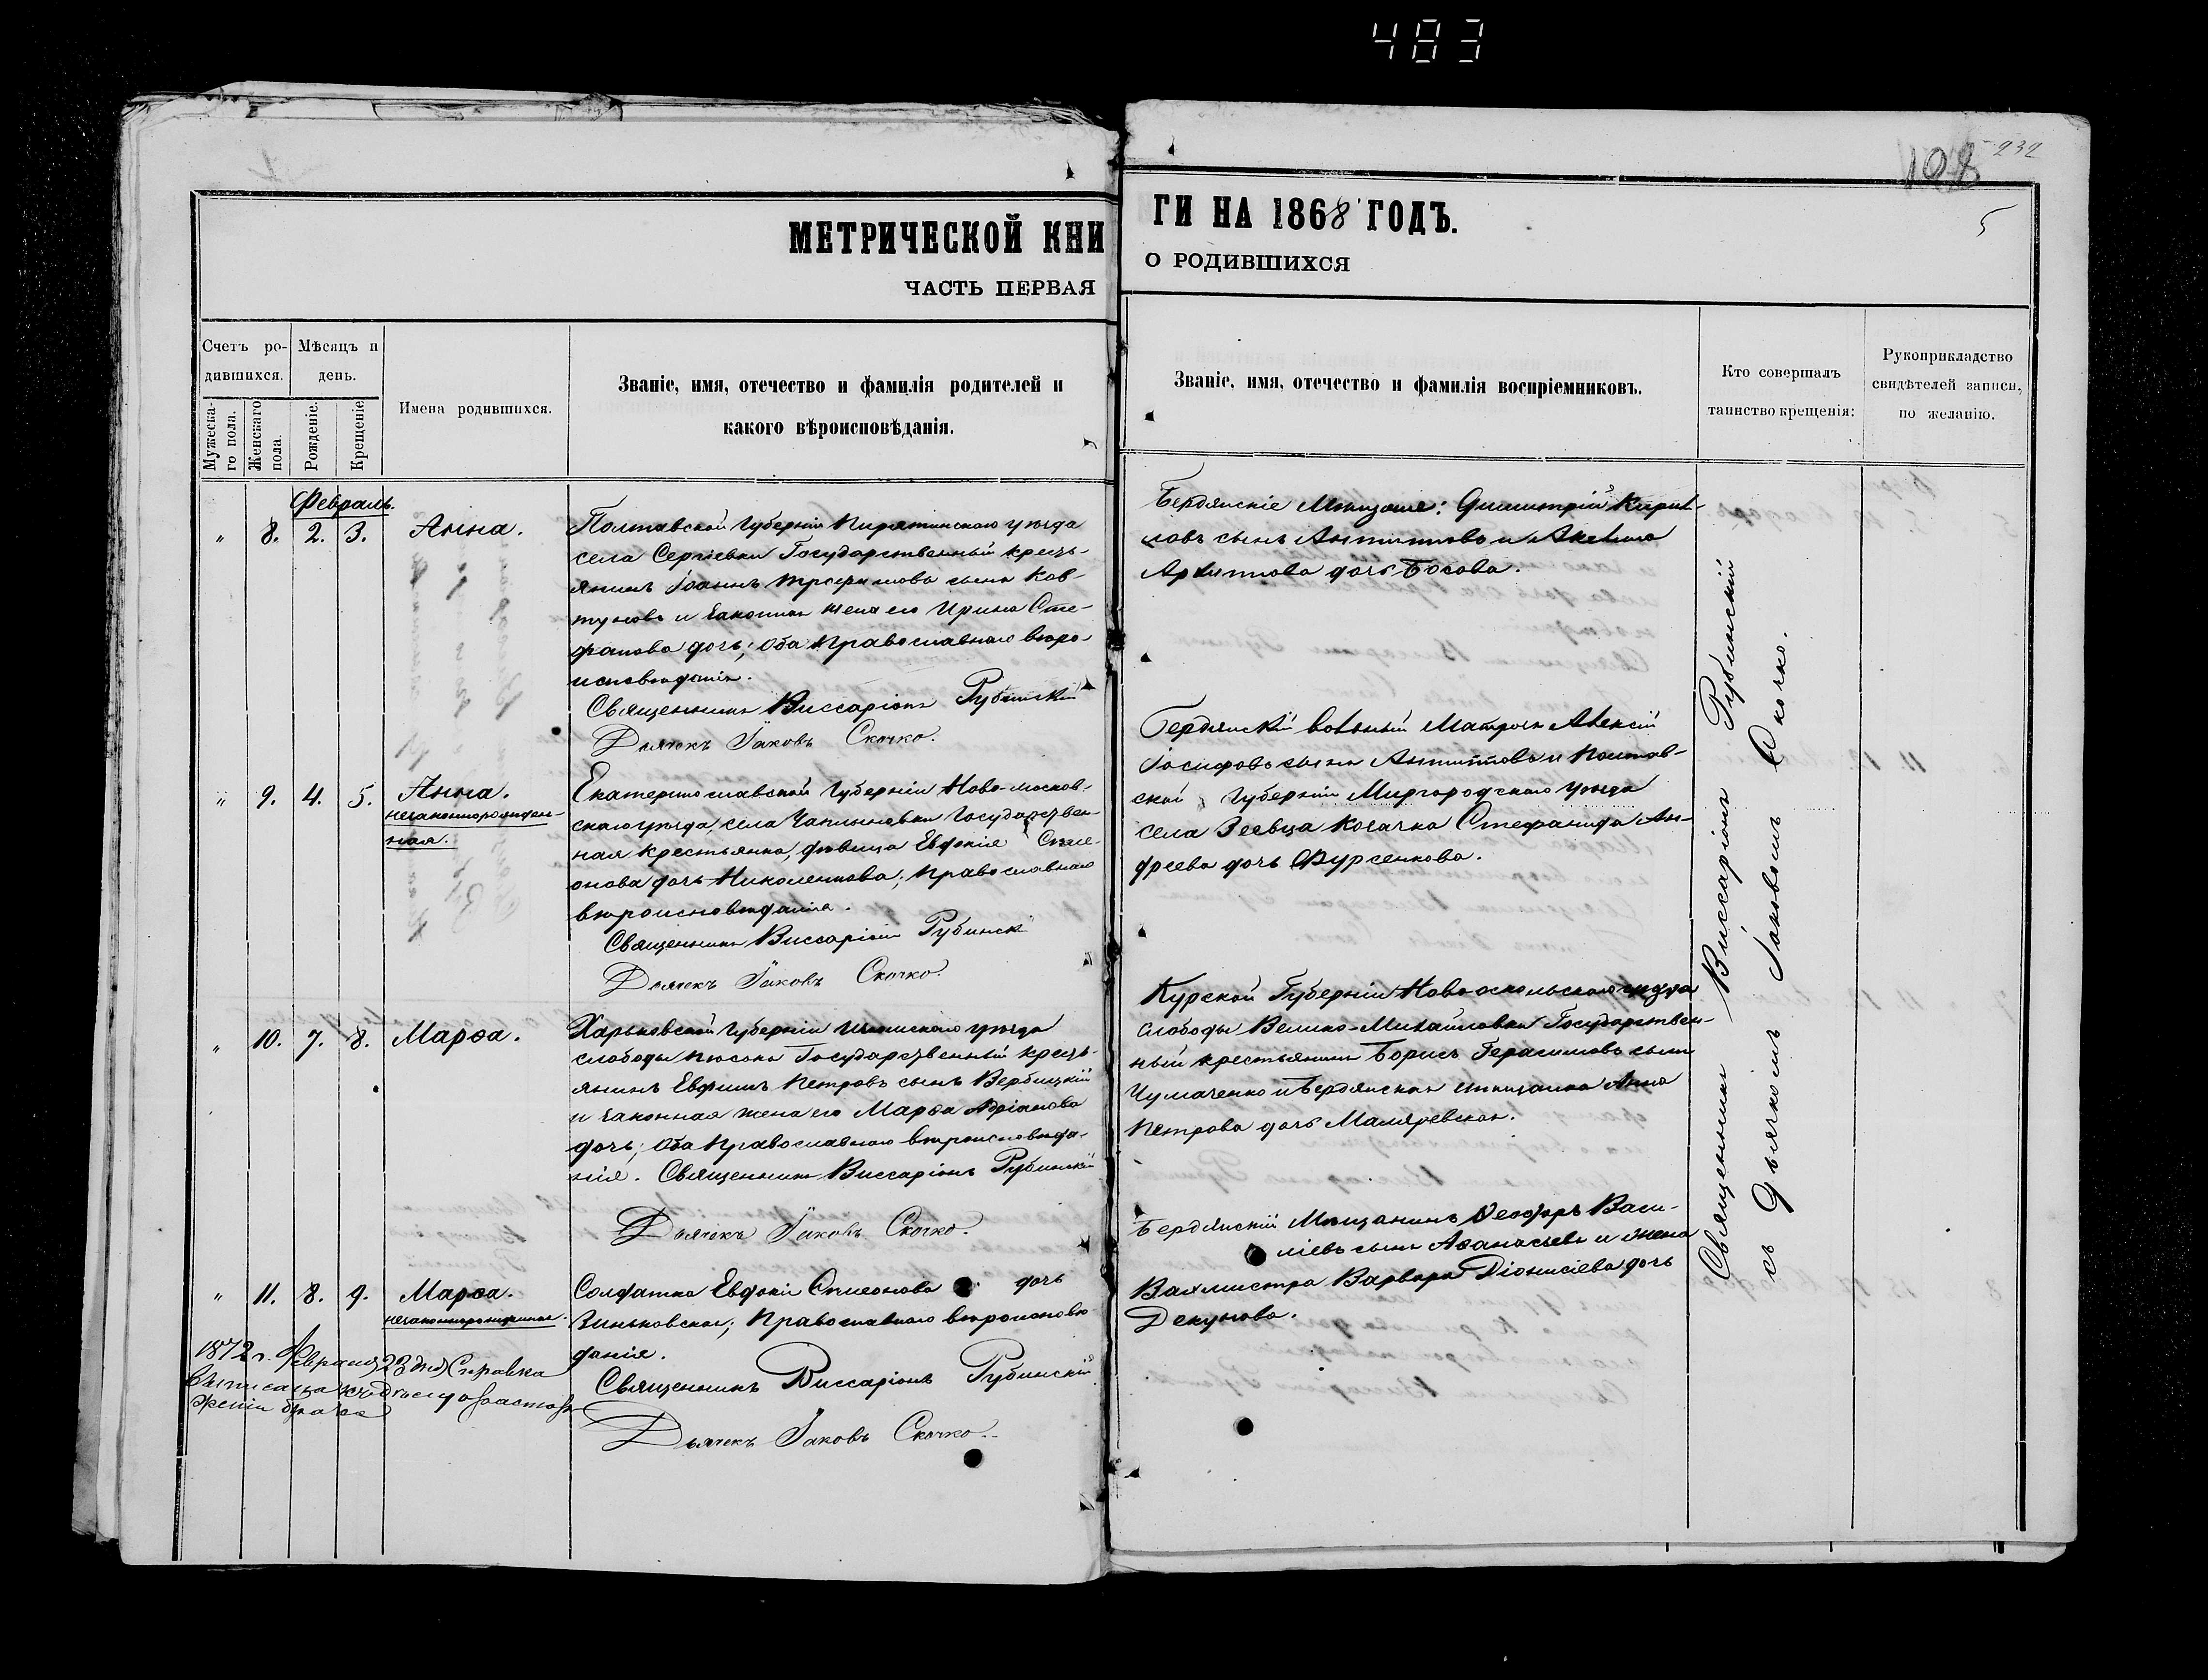 483
108
232
5
МЕТРИЧЕСКОЙ КНИ
ГИ НА 1868 ГОДЪ.
ЧАСТЬ ПЕРВАЯ
О РОДИВШИХСЯ
Счетъ ро-
дившихся.
Мужеска-
го пола.
Женскаго
пола.
Мѣсяцъ и
день.
Рожденіе.
Крещеніе
Имена родившихся.
Званіе, имя, отечество и фамилія родителей и
какого вѣроисповѣданія.
Званіе, имя, отечество и фамилія воспріемниковъ.
Кто совершалъ
таинство крещенія:
Рукоприкладство
свидѣтелей записи,
по желанію.
Февраль.
" 8. 2. 3. Анна.
Полтавской Губерніи Пирятинскаго уѣзда
села Сергіевки Государственный кресть-
янинъ Іоаннъ Трофимовъ сынъ Ков-
туновъ и законная жена его Ирина Сте-
фанова дочь; оба Православнаго вѣро-
исповѣданія.
Священникъ Виссаріонъ Рубинскій
Дьячекъ Іаковъ Скочко.
Бердянскіе Мѣщане: Димитрій Кирил-
ловъ сынъ Антиповъ и Акелина
Архиппова дочь Босова.
" 9. 4. 5. Анна.
незаконнорожден-
ная.
Екатеринославской Губерніи Ново-москов-
скаго уѣзда, села Чаплиновки Государствен-
ная крестьянка, дѣвица Евдокія Симе-
онова дочь Николенкова; Православнаго
вѣроисповѣданія.
Священникъ Виссаріонъ Рубинскій
Дьячекъ Іаковъ Скочко.
Бердянскій вольный Матрозъ Алексій
Іосифовъ сынъ Антиповъ и Полтав-
ской Губерніи Миргородскаго уѣзда
села Зеевца козачка Стефанида Ан-
дреева дочь Фурсенкова.
" 10. 7. 8. Марѳа.
Харьковской Губерніи Изюмскаго уѣзда
слободы Песокъ Государственный кресть-
янинъ Евфимъ Петровъ сынъ Вербицкій
и законная жена его Марѳа Адріанова
дочь; оба Православнаго вѣроисповѣда-
нія. Священникъ Виссаріонъ Рубинскій
Дьячекъ Іаковъ Скочко.
Курской Губерніи Новооскольскаго уѣзда
слободы Велико-Михайловки Государствен-
ный крестьянинъ Борисъ Герасимовъ сынъ
Чумаченко и Бердянская мѣщанка Анна
Петрова дочь Маляревская.
" 11. 8. 9. Марѳа.
незаконнорожденная.
Солдатка Евдокія Симеонова дочь
Зиньковская; Православнаго вѣроисповѣ
данія.
Священникъ Виссаріонъ Рубинскій
Дьячекъ Іаковъ Скочко.
Бердянскій Мѣщанинъ Ѳеодоръ Васи-
ліевъ сынъ Аѳанасьевъ и жена
Вахмистра Варвара Діонисіева дочь
Декунова.
1872 г. Февраля 23 дня Справка
Священникъ Виссаріонъ Рубинскій
съ Дьячкомъ Іаковомъ Скочко.